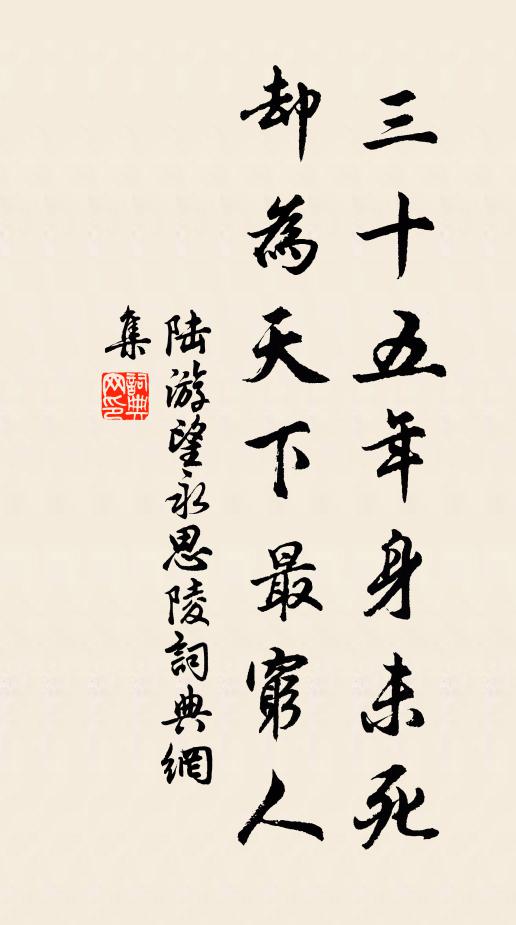 三十五年身未死
却為天下最窮人
陸游望永思陵詞典網
集
詞典
网印